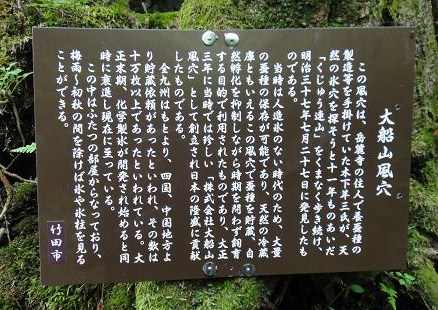 大船山風穴
この風穴は、岳麓寺の住人で養蚕種の
製造等を手掛けていた木下幸三氏が、天
然の氷穴を探そうと十一年ものあいだ
「くじゅう連山」をくまなく歩き続け、
明治三十七年七月二十七日に発見したも
のである。
当時は人造氷のない時代のため、大量
の蚕種の保存が可能であり、天然の冷蔵
庫ともいえるこの風穴で蚕種を貯蔵、自
然孵化を抑制しながら時期を問わず飼育
する目的で利用されたものであり、大正
三年に当時では珍しい「株式会社大船山
風穴」として創立され日本の隆盛に貢献
したものである。
全九州はもとより、四国、中国地方よ
り貯蔵依頼があったといわれ、その数は
十万枚以上であったといわれている。大
正末期、化学製氷の開発され始めると同
時に衰退し現在に至っている。
この中はふたつの部屋からなっており、
梅雨〜初秋の間を除けば氷や氷柱を見る
ことができる。
竹田市